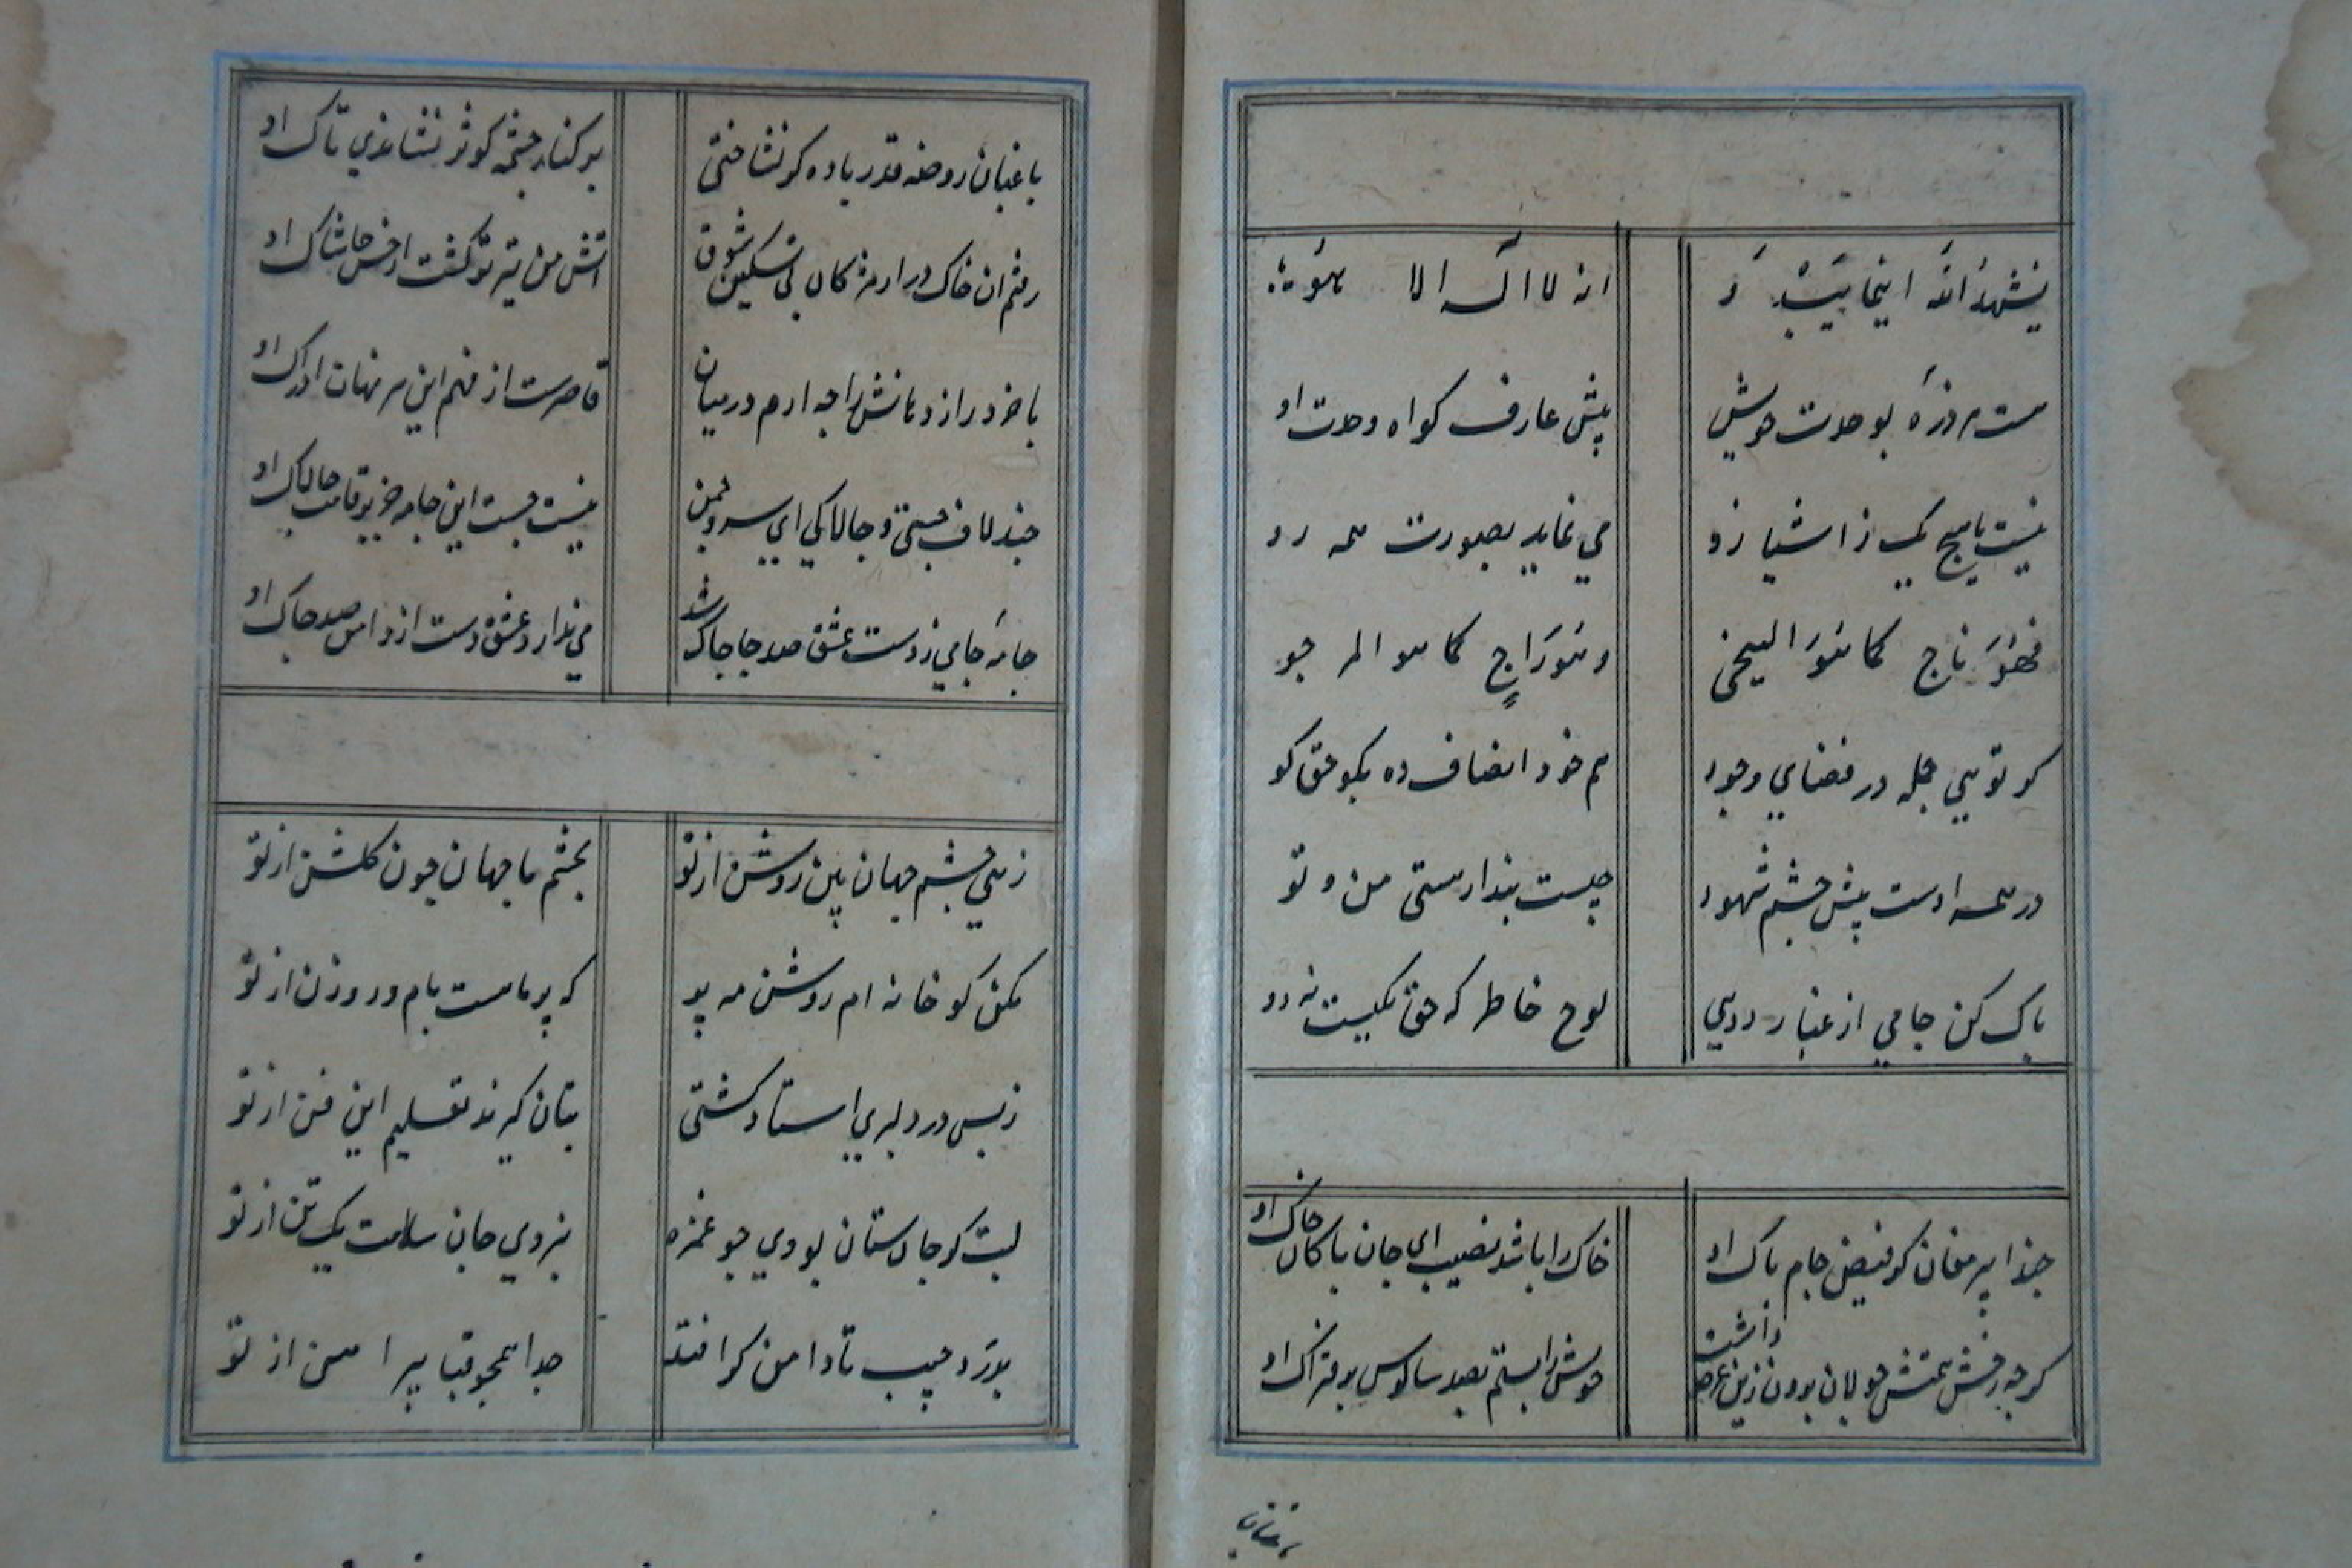 یشهد الله اینما یبدو
انه لا اله الا هو
هست هر ذره بوحدت خویش
پیش عارف کواه وحدت او
نیست با هیچ یک ز اشیا زو
می نماید بصورت همه رو
فهو ناج کما هو الیحی
و هو راج کما هو المر جو
کو تویی جمله در فضای وجود
هم خود انصاف ده بکو حق کو
در همه اوست پیش چشم شهود
چیست پندار هستی من و تو
پاک کن جامی از غبار دویی
لوح خاطر که حق یکیست نه دو
حبذا پیر مغان کو فیض جام پاک او
خاک را باشد نصیب ای جان پاکان خاک او
کرچه رخش همتش جولان برون زین عرصه داشت
خویش را بستم بصد سالوس بر فتراک او
باغبان روضه قدر باده کر نشناختی
بر کنار چشمه کوثر نشاندی تاک او
رفتم ان خاک در ارم مژکان پی تسکین شوق
اتش من تیز تر کشت از خس و خاشاک او
با خرد راز دهانش را چه ارم در میان
قاصرست از فهم این سر نهان ادراک او
چند لاف چستی و چالاکی ای سرو چمن
نیست چست این جامه جز بر قامت چالاک او
جامه جامی ز دست عشق صد جا چاک شد
می ندارد عشق دست از دامن صد چاک او
زهی چشم جهان بین روشن از تو
بچشم ما جهان چون کلشن از تو
مکن کو خانه ام روشن مه
که پر ماهست بام و روزن از تو
ز بس در دلبری استاد کشتی
بتان کیرند تعلیم این فن از تو
لبت کر جان ستان بودی چو غمزه
نبردی جان سلامت یک تن از تو
بدرد جیب تا دامن کر افتد
جدا همچو قبا پیراهن از تو
باغبان